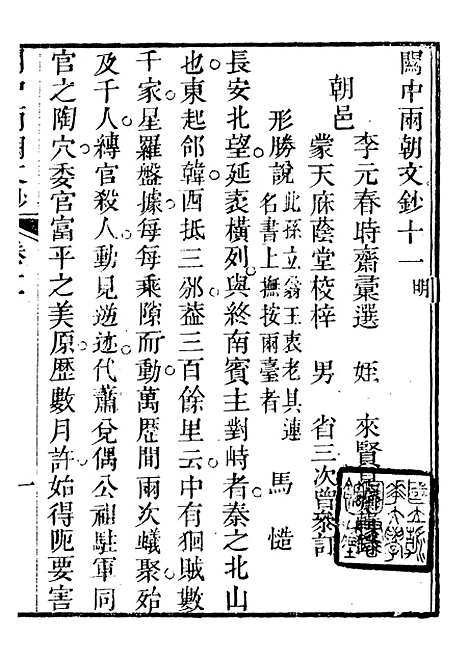 關中兩朝文鈔十一明
李元春時齋彙選 姪 來賢
朝邑
蒙天庥蔭堂校梓 男 省三次曾參訂
形勝說此孫立翁王衷老具連名書上撫按兩臺者 馬慥
長安北望延袤橫列與終南賓主對峙者秦之北山
也東起郃韓西抵三邠葢三百餘里云中有猖賊數
千家星羅盤據每每乘隙而動萬歷間兩次蟻聚殆
及千人縛官殺人動見逆迹代蕭兌偶公祖駐軍同
官之陶穴委官富平之美原歷數月許始得阨要害
關中兩朝文鈔 卷十一
一